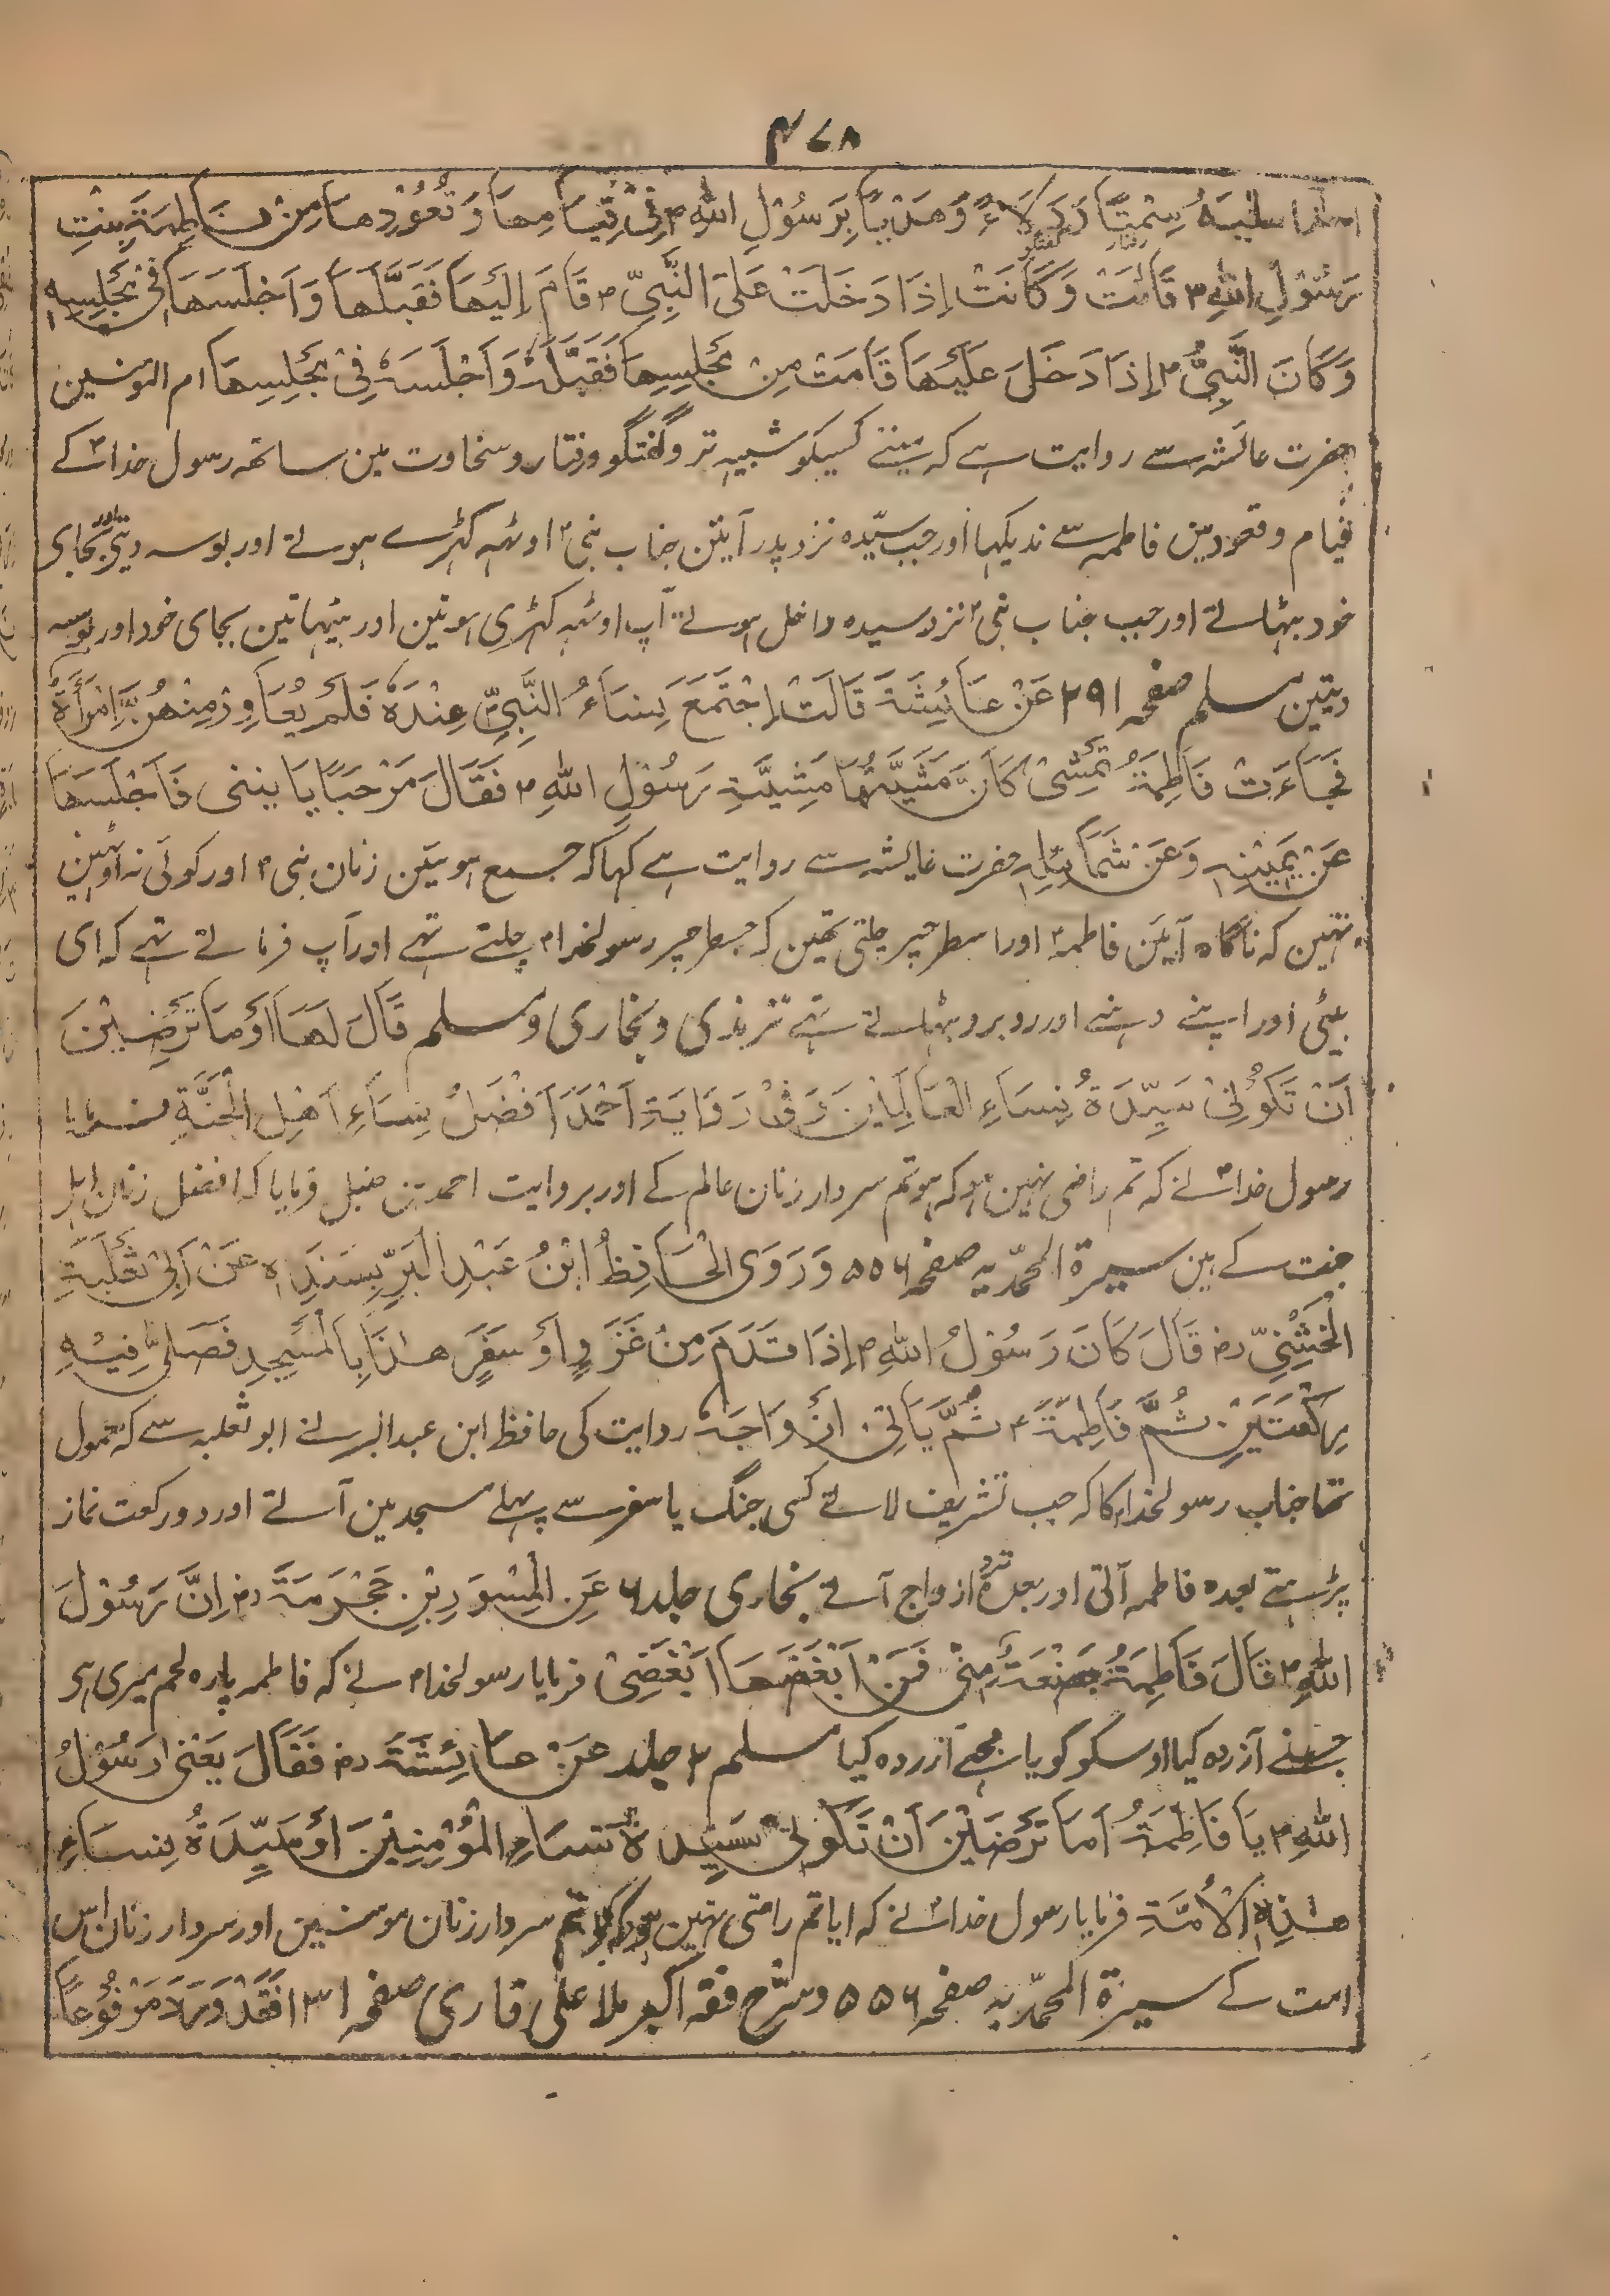 ۴۷۸
سِمْتًا وَدَلَاءً وَهَدْيًا بِرَسُوْلِ اللهِ ؐ فِيْ قِيَامِهَا وَقُعُوْدِهَا مِنْ فَاطِمَةَ بِنْتِ
رَسُوْلِ اللهِ ؐ قَالَتْ وَكَانَتْ إِذَا دَخَلَتْ عَلَى النَّبِيِّ ؐ قَامَ إِلَيْهَا فَقَبَّلَهَا وَاَجْلَسَهَا فِيْ مَجْلِسِهِ
وَكَانَ النَّبِيُّ ؐ إِذَا دَخَلَ عَلَيْهَا قَامَتْ مِنْ مَجْلِسِهَا فَقَبَّلَهُ وَاَجْلَسَهُ فِيْ مَجْلِسِهَا ام المومنین
حضرت عائشہ سے روایت ہے کہ مینے کسیکو شبیہ تر وگفتگو ورفتار وسخاوت مین ساتھہ رسول خداؐ کے
قیام وقعود مین فاطمہ سے ندیکہا اور جب سیّدہ نزد پدر آیئن جناب نبی ؐ اوٹہہ کہڑے ہوتے اور بوسہ دیتے اور بجای
خود بہٹاتے اور جب جناب نبی ؐ نزد سیدہ داخل ہوتے آپ اوٹہہ کہڑی ہوتین اور بیٹہاتین بجای خود اور بوسہ
دیتین مسلم صفحہ ۲۹۱ عَنْ عَائِشَةَ قَالَتْ اِجْتَمَعَ نِسَاءُ النَّبِيِّ ؐ عِنْدَهُ فَلَمْ يُغَاوِرْ مِنْهُنَّ اِمْرَأَةً
فَجَاءَتْ فَاطِمَةُ تَمْشِىْ كَاَنَّ مَشْيَتَهَا مَشِيَّةِ رَسُوْلِ اللهِ ؐ فَقَالَ مَرْحَبًا يَا بنتى فَاَجْلَسَهَا
عَنْ يَمِيْنِهٖ وَعَنْ شَمَائِلِهٖ حضرت عایشہ سے روایت ہے کہا کہ جمع ہویئن زنان نبی ؐ اور کوئی نہ اوٹہین
تہین کہ ناگاہ آیئن فاطمہؑ اور اسطرحپر چلتی تھین کہ جسطرحپر رسولخدا ؐ چلتے تہے اور آپ فرماتے تہے کہ ای
بیٹی اور اپنے دہنے اور روبرو بہٹاتے تہے ترمذی وبخاری ومسلم قَالَ لَهَا اَوْمَا تَرْضِيْنَ
اَنْ تَكُوْنِيْ سَيِّدَةُ نِسَاءِ الْعَالَمِيْنَ وَفِيْ رَوَايَةِ اَحْمَدَ اَفْضَلُ نِسَاءِ اَهْلِ الْجَنَّةِ فرمایا
رسول خداؐ نے کہ تم راضی نہین ہو کہ ہو تم سردار زنان عالم کے اور بروایت احمد بن حنبل فرمایا کہ افضل زنان اہل
جنت کے ہین سیرۃ المحمّدیہ صفحہ ۵۵۶ وَرَوَى الْحَافِظُ ابْنُ عَبْدِ الْبَرِّ بِسَنَدِهٖ عَنْ اَبِيْ ثَعْلَبَةِ
الْخُشَنِيِّ رض قَالَ كَانَ رَسُوْلُ اللهِ ؐ إِذَا قَدَمَ مِنْ غَزَوٍ اَوْ سَفَرٍ هٰذَا بِالْمَسْجِدِ فَصَلّٰى فِيْهِ
رَكْعَتَيْنِ ثُمَّ فَاطِمَةَ ؑ ثُمَّ يَاْتِيْ اَزْوَاجَهُ روایت کی حافظ ابن عبدالبر نے ابو ثعلبہ سے کہ معمول
تھا جناب رسولخدا ؐ کا کہ جب تشریف لاتے کسی جنگ یا سفر سے پہلے مسجد مین آتے اور دو رکعت نماز
پڑہتے بعدہ فاطمہ آتی اور بعدہ نزد ازواج آتے بخاری جلد ۶ عَنِ الْمِسْوَرِ بْنِ مَخْرَمَةَ رض اِنَّ رَسُوْلَ
اللهِ ؐ قَالَ فَاطِمَةُ بَضْعَةٌ مِنِّيْ فَمَنْ اَبْغَضَهَا اَبْغَضَنِيْ فرمایا رسولخدا ؐ نے کہ فاطمہ پارہ لحم میری ہی
جسنے آزردہ کیا اوسکو گویا مجہے آزردہ کیا مسلم ۲ جلد عَنْ عَائِشَةَ رض فَقَالَ يَعْنِى رَسُوْلُ
اللهِ ؐ يَا فَاطِمَةُ اَمَا تَرْضَيْنَ اَنْ تَكُوْنِيْ سَيِّدَةُ نِسَاءِ الْمُؤْمِنِيْنَ اَوْ سَيِّدَةُ نِسَاءِ
هٰذِهِ الْاُمَّةِ فرمایا رسول خداؐ نے کہ ایا تم راضی نہین ہو کہ ہو تم سردار زنان مومنین اور سردار زنان اس
امت کے سیرۃ المحمّدیہ صفحہ ۵۵۶ وشرح فقہ اکبر ملا علی قاری صفحہ ۱۳۱ فَقَدْ وَرَدَ مَرْفُوْعًا